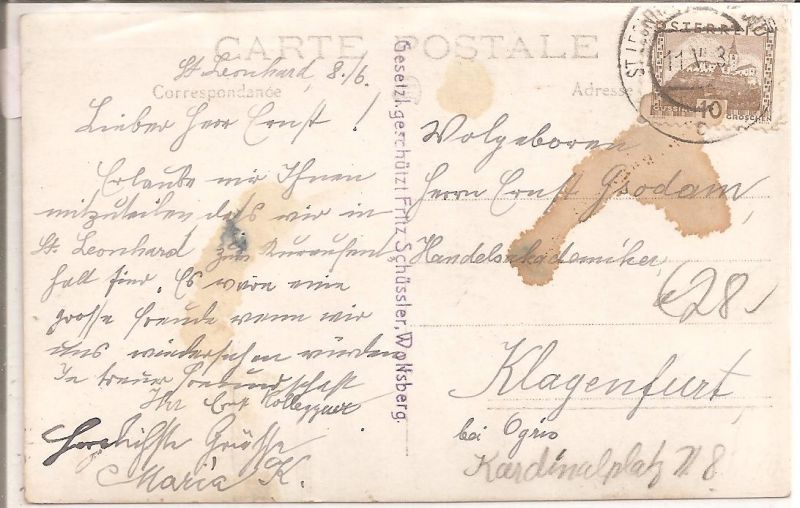 CARTE POSTALE
Correspondance
Adresse
St. Leonhard, 8./6.
Lieber Herr Ernst!
Erlaube mir Ihnen
mitzuteilen daß wir in
St. Leonhard zum Kuraufent
halt sind. Es wäre eine
grosse Freude wenn wir
uns wiedersehen würden
In treuer Freundschaft
Ihr
Herzlichste Grüsse
Maria K.
Gesetzl. geschützt Fritz Schüssler, Wolfsberg.
ÖSTERREICH
10
GROSCHEN
Wolgeboren
Herrn Ernst Gsodam,
Handelsakademiker
€28,
Klagenfurt
bei Ogris
Kardinalplatz N 8